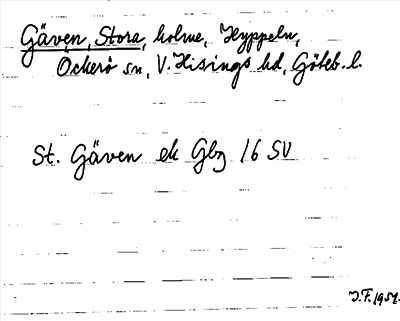 Gäven, Stora, holme, Hyppeln,
Öckerö sn, V. Hisings hd, Göteb. l.
St. Gäven ek Gbg 16 SV
J.F. 1954.